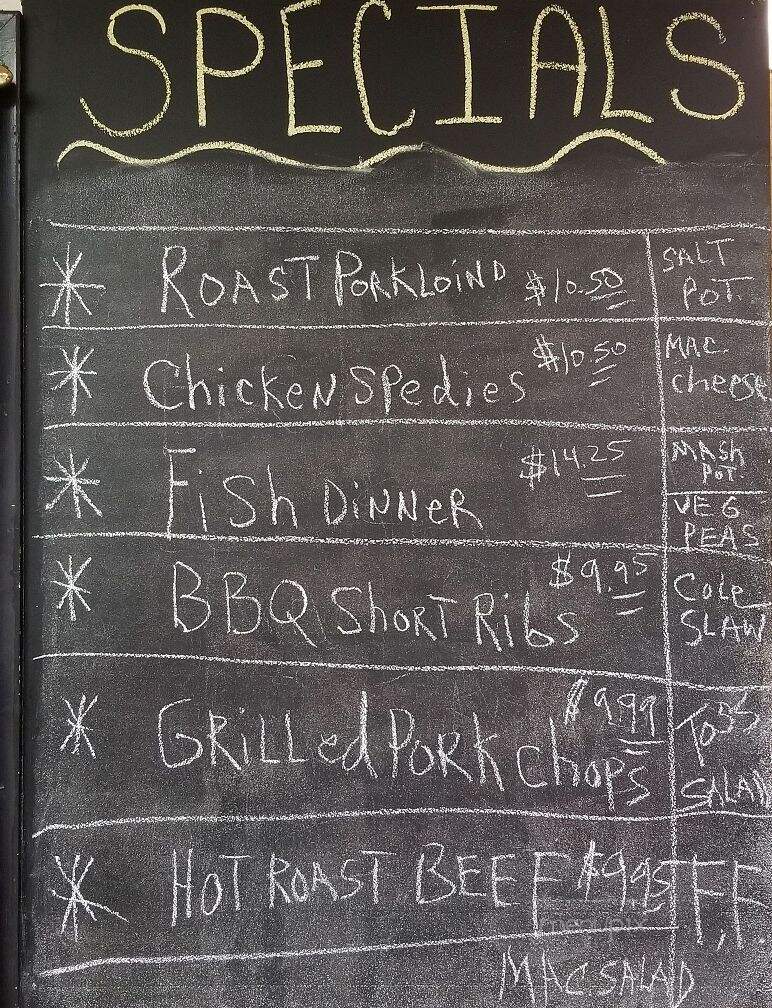 SPECIALS
ROAST PORKLOIND $10.50
SALT
POT.
Chicken Spedies $10.50
MAC
Cheese
Fish Dinner $14.25
MASH
POT.
VEG
PEAS
BBQ Short Ribs $9.95
Cole
SLAW
Grilled Pork Chops $9.99
Toss
SALAD
HOT ROAST BEEF $9.95
F.F.
MAC SALAD